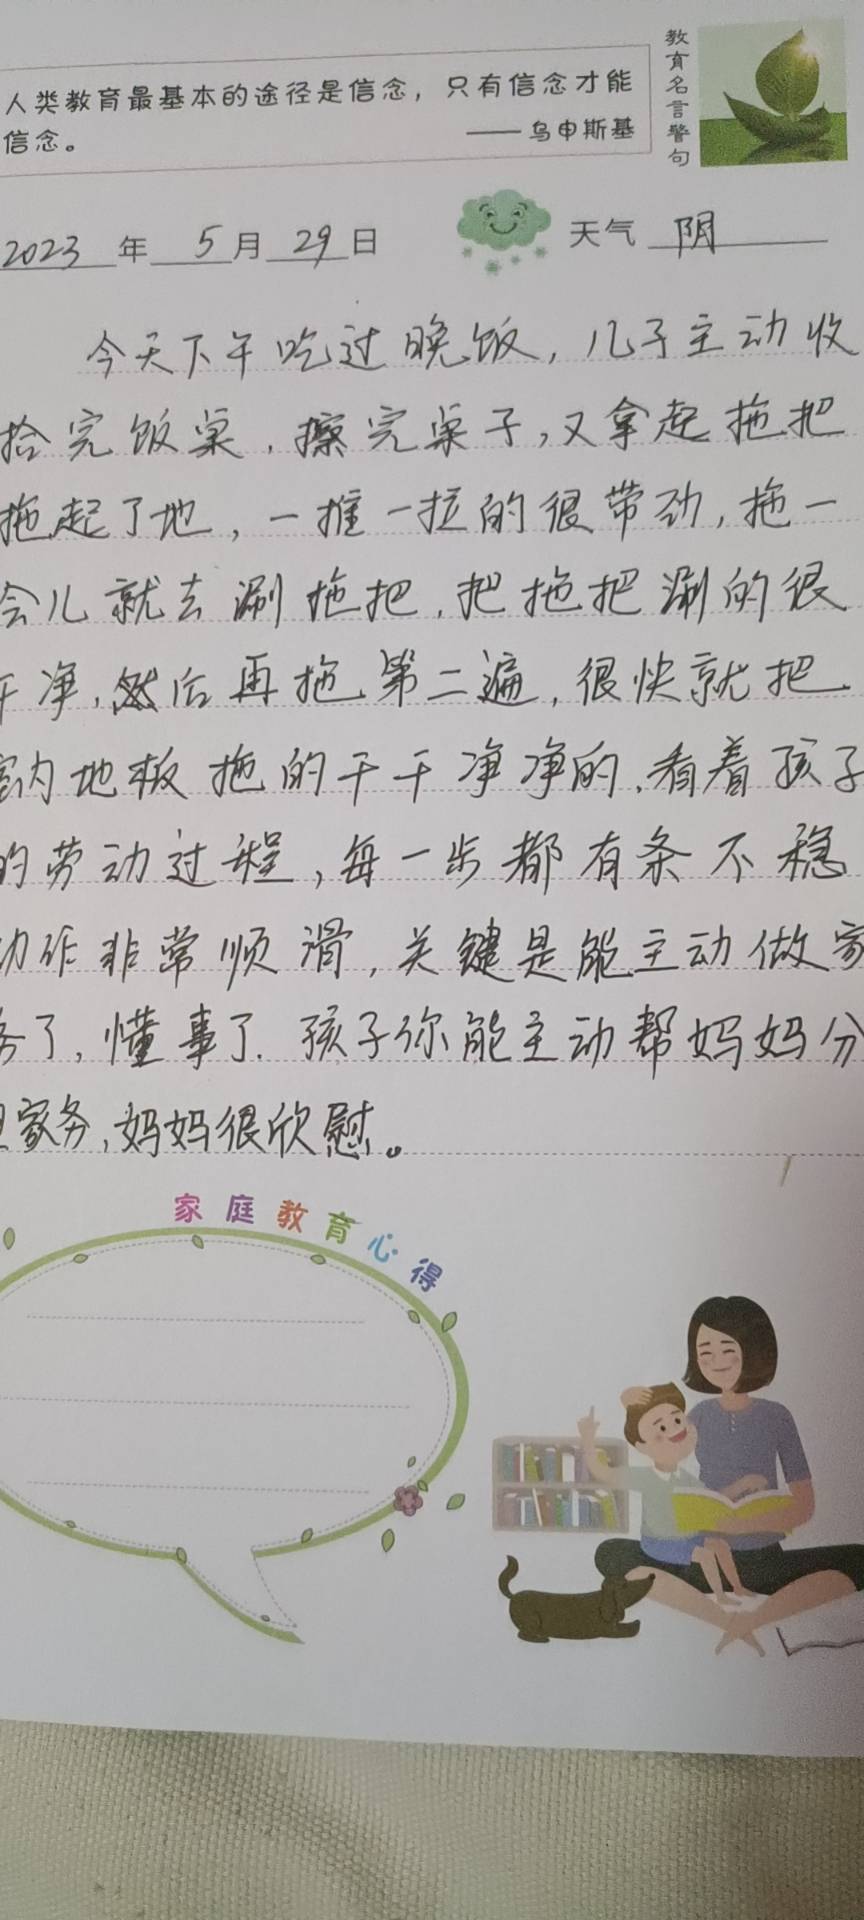 人类教育最基本的途径是信念，只有信念才能
信念。
——乌申斯基
教育名言警句
2023年 5月 29日
天气 阴
今天下午吃过晚饭，儿子主动收
拾完饭桌，擦完桌子，又拿起拖把
拖起了地，一推一拉的很带劲，拖一
会儿就去涮拖把，把拖把涮的很
干净，然后再拖第二遍，很快就把
室内地板拖的干干净净的，看着孩子
的劳动过程，每一步都有条不稳
动作非常顺滑，关键是能主动做家
务了，懂事了.孩子你能主动帮妈妈分
担家务，妈妈很欣慰。
家庭教育心得